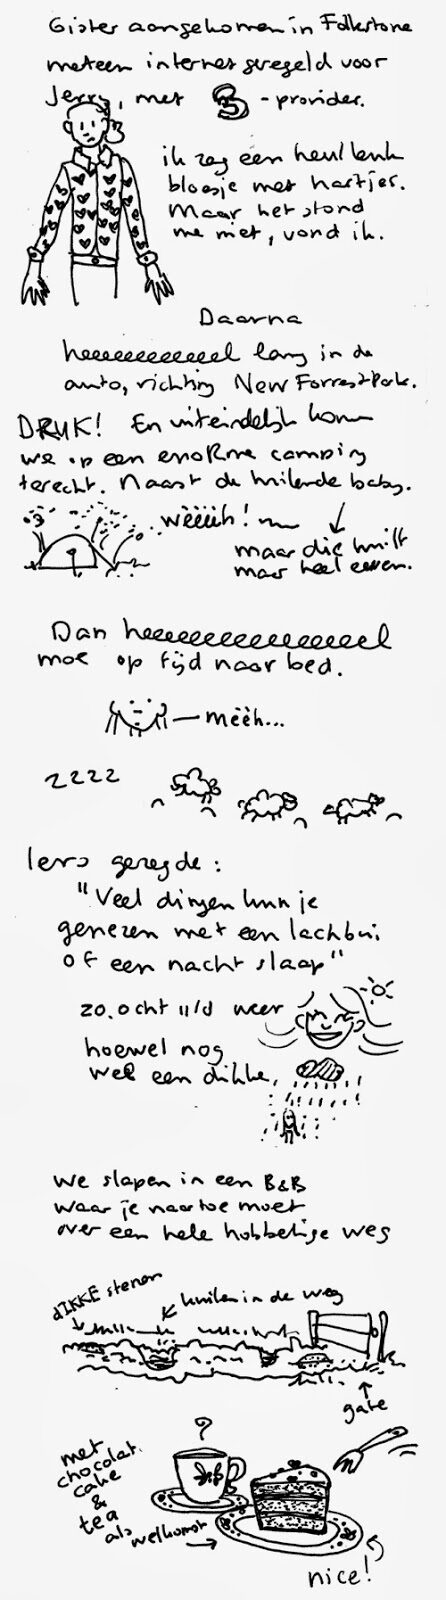 Gister aangekomen in Folkestone
meteen internet geregeld voor
Jerry, met 3-provider.
ik zag een heul leuk
bloesje met hartjes.
Maar het stond
me niet, vond ik.
Daarna
heeeeeeeeeeel lang in de
auto, richting New Forrest Park.
DRUK! En uiteindelijk komen
we op een enorme camping
terecht. Naast de huilende baby.
wèèèh!
maar die huilt
maar heel even.
Dan heeeeeeeeeeeeeeeel
moe op tijd naar bed.
mèèh...
zzzz
Iers gezegde:
"Veel dingen kun je
genezen met een lachbui
of een nacht slaap"
zo.ocht //d weer
hoewel nog
wel een dikke,
we slapen in een B&B
waar je naartoe moet
over een hele hobbelige weg
DIKKE stenen
kuilen in de weg
gate
met
chocolat.
cake
&
tea
als welkomst
nice!